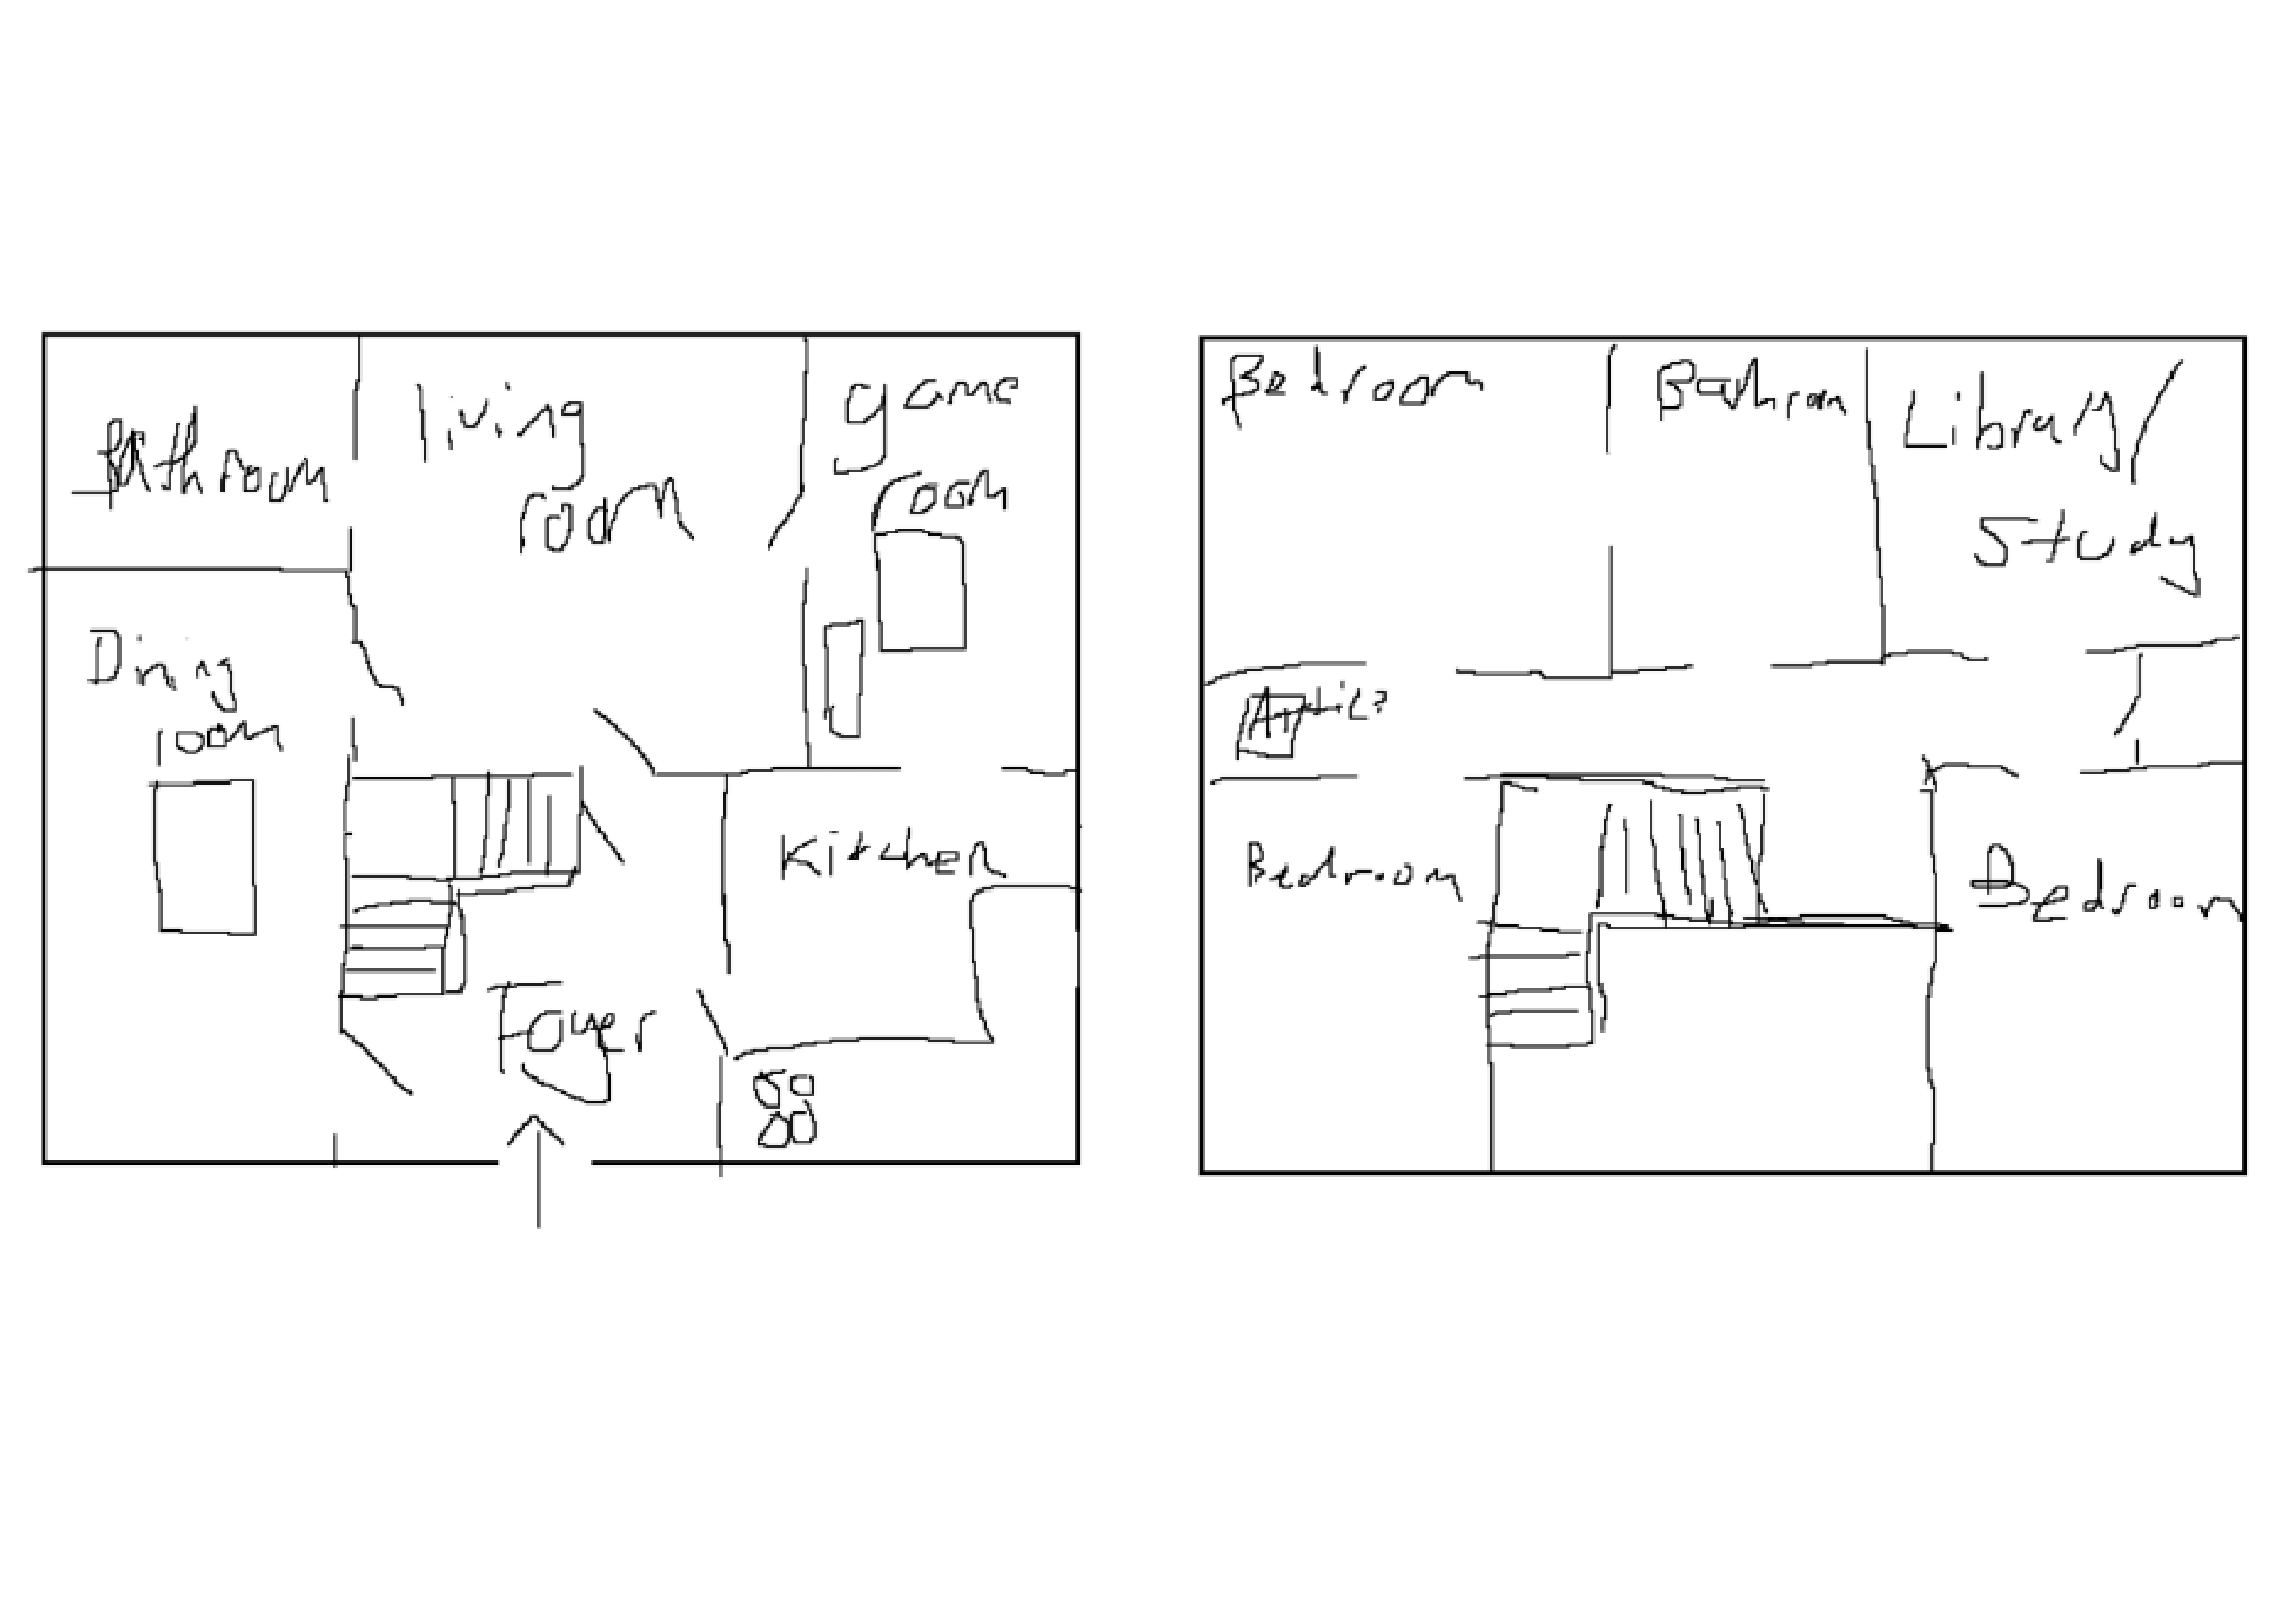 Bathroom
living
room
game
room
Dining
room
Kitchen
Foyer
Bedroom
Bathrom
Library/
Study
Attic?
Bedroom
Bedroom